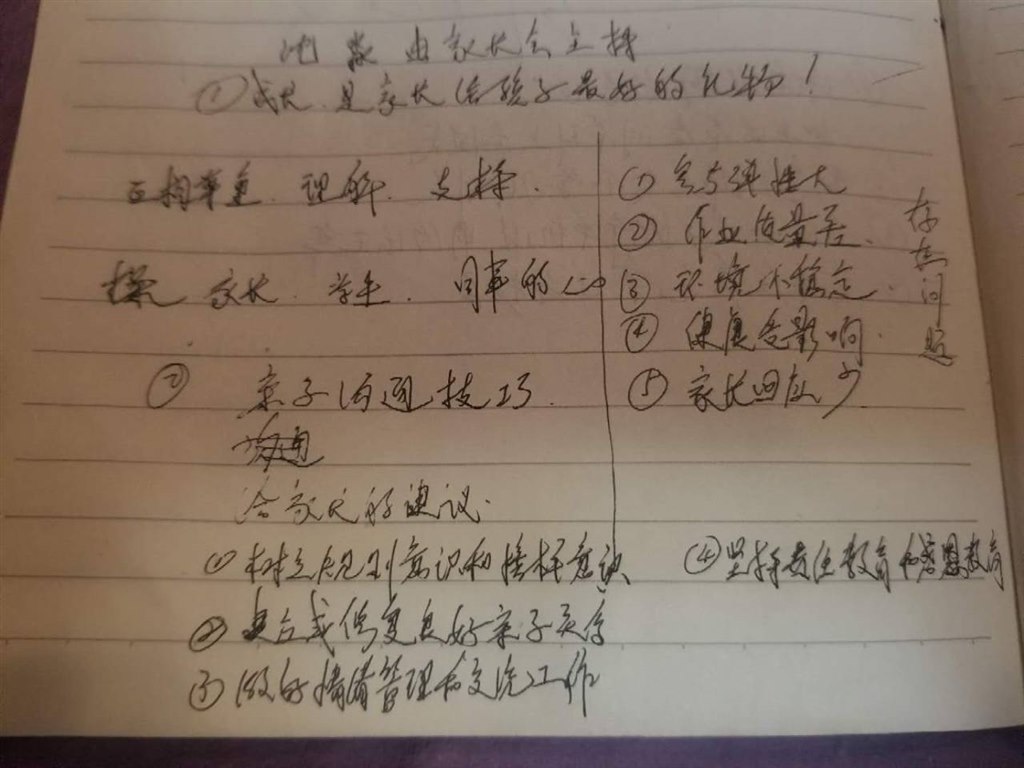 由家长会主持
①成长是家长给孩子最好的礼物！
互相尊重.理解.支持.
家长.学生.同事的心
② 亲子沟通技巧.
沟通
给家长的建议.
①树立规则意识和榜样意识
②建立或修复良好亲子关系
③做好情绪管理和交流工作
④坚持责任教育和感恩教育
存在问题
①参与弹性大
②作业质量差.
③环境不稳定.
④健康受影响.
⑤家长回应少